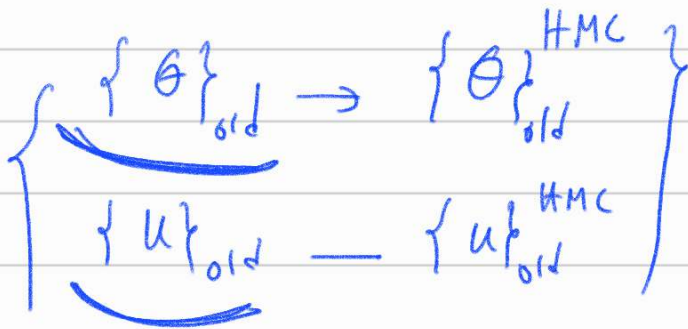 { {θ}old → {θ}old^HMC }
{u}old — {u}old^HMC